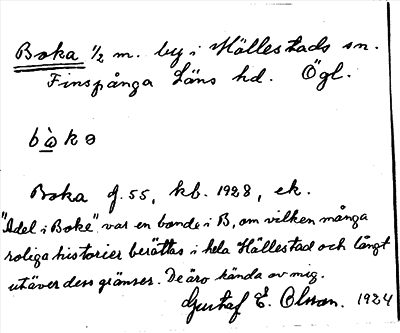 Boka 1/2 m. by i Hällestads sn.
Finspånga Läns hd. Ögl.
bòkə
Boka f. 55, kb. 1928, ek.
"Adel i Boke" var en bonde i B, om vilken många
roliga historier berättas i hela Hällestad och långt
utöver dess gränser. De äro kända av mig.
Gustaf E. Olsson. 1924